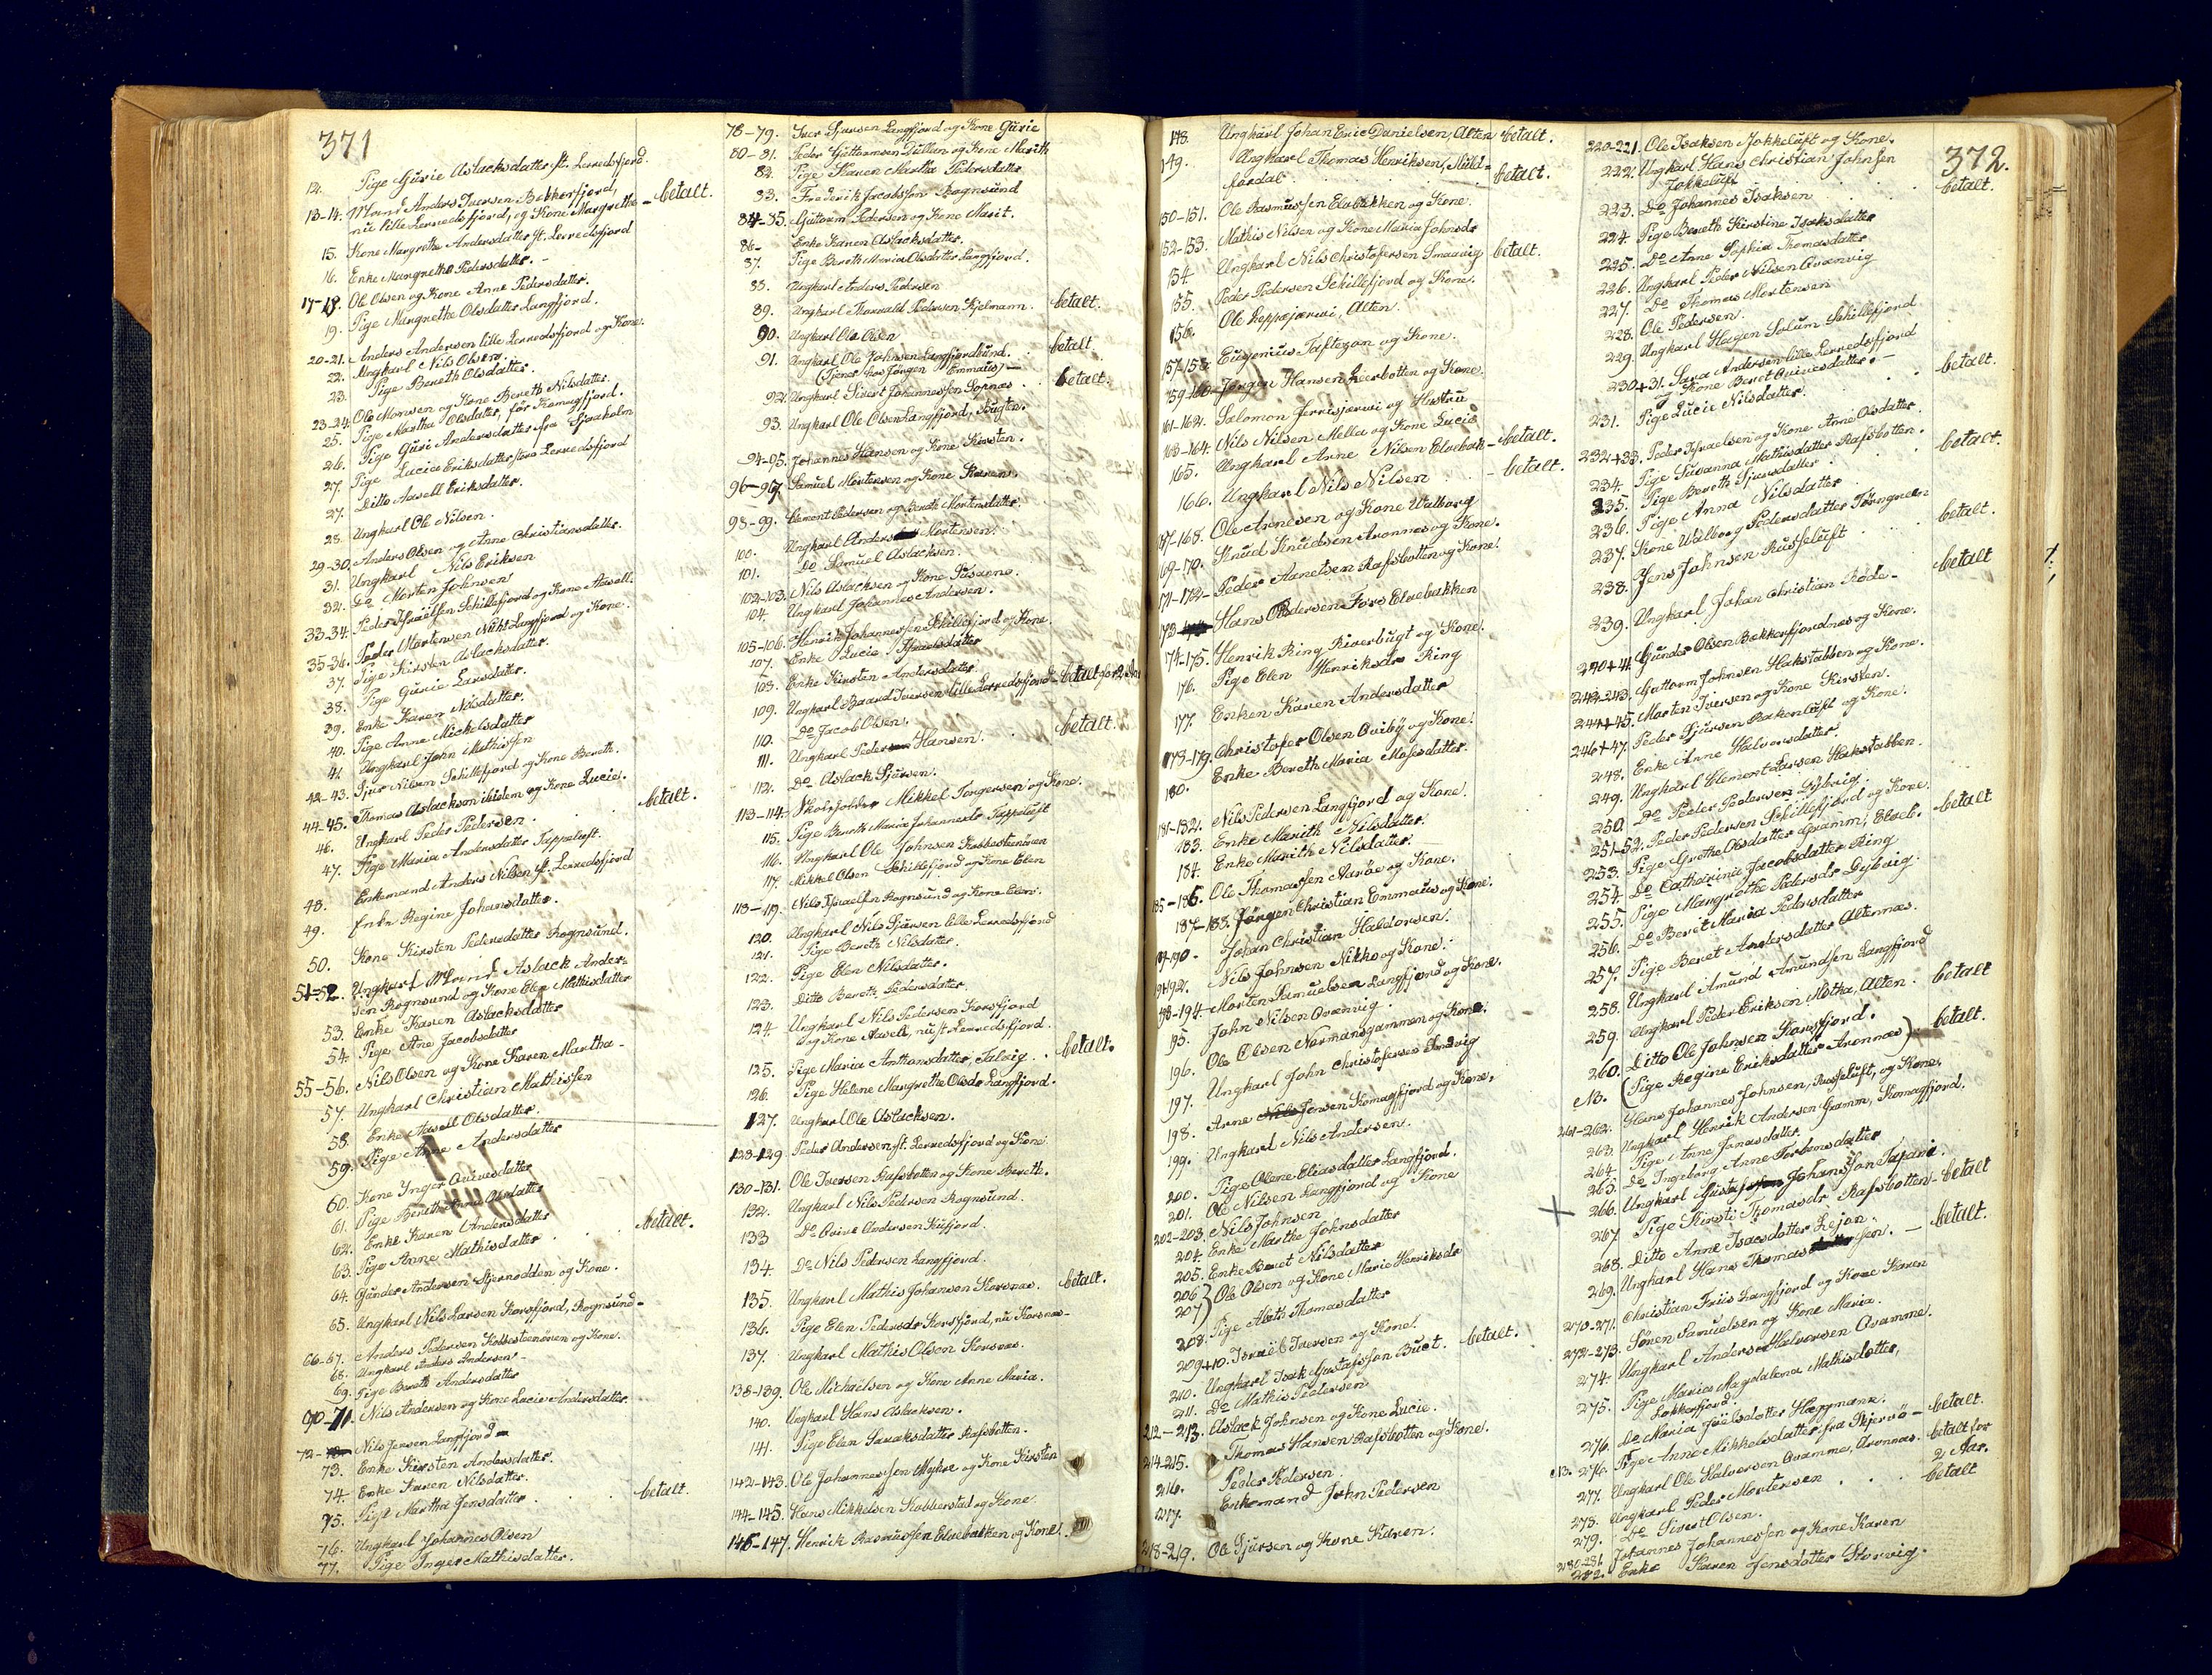 371
12. Pige Gurie Aslacksdatter st. Lerredsfjord.
13-14. Mand Anders Iversen Bekkerfjord,
nu lille Lerredsfjord, og Kone Margrethe - betalt.
15. Kone Margrethe Andersdatter st. Lerredsfjord
16. Enke Margrethe Pedersdatter. -
17-18. Ole Olsen og Kone Anne Pedersdatter.
19. Pige Margrethe Olsdatter Langfjord.
20-21. Anders Andersen lille Lerredsfjord og Kone.
22. Ungkarl Nils Olsen.
23. Pige Bereth Olsdatter.
23-24. Ole Monsen og Kone Bereth Nilsdatter.
25. Pige Martha Olsdatter, før Komagfjord.
26. Pige Guri Andersdatter fra Stjraholm
27. Pige Lucie Eriksdatter fra Lerredsfjord
27. Ditto Aasell Eriksdatter.
28. Ungkarl Ole Nilsen.
29-30. Anders Olsen og Anne Christiansdatter.
31. Ungkarl Nils Eriksen
32. Do Morten Johnsen
33-34. Peder Israelsen Schillefjord og Kone Aasell.
35-36. Peder Mortensen Langfjord og Kone.
37. Pige Kirsten Aslacksdatter.
38. Pige Gurie Larsdatter.
39. Enke Karen Nilsdatter.
40. Pige Anne Mickelsdatter
41. Ungkarl John Mathissen
42-43. Sjur Nilsen Schillefjord og Kone Bereth.
44-45. Thomas Aslacksen ibidem og Kone Lucie.
46. Ungkarl Peder Pedersen . . betalt.
47. Pige Maria Andersdatter Tappeluft.
48. Enkemand Anders Nilsen st. Lerredsfjord
49. Enke Regine Johansdatter.
50. Kone Kirsten Pedersdatter Rognsund.
51-52. Ungkarl Mand Aslack Ander-
sen Rognsund og Kone Elen Mathisdatter
53. Enke Karen Aslacksdatter
54. Pige Ane Jacobsdatter
55-56. Nils Olsen og Kone Karen Martha -
57. Ungkarl Christian Mathissen
58. Enke Aasell Olsdatter.
59. Pige Anne Andersdatter
60. Kone Inger Qvivesdatter
61. Pige Bereth Anne Olsdatter
62. Enke Karen Andersdatter
63. Pige Anne Mathisdatter . . betalt.
64. Gunder Andersen Stjernodden og Kone.
65. Ungkarl Nils Larsen Korsfjord, Rognsund -
66-67. Anders Pedersen Kobbesteenøren og Kone.
68. Ungkarl Anders Andersen -
69. Pige Bereth Andersdatter
70-71. Nils Andersen og Kone Lucie Andersdatter.
72- Nils Jensen Langfjord
73. Enke Kirsten Andersdatter.
74. Enke Karen Nilsdatter.
75. Pige Martha Jensdatter . . betalt.
76. Ungkarl Johannes Olsen
77. Pige Inger Mathisdatter.
78-79. Iver Sjursen Langfjord og Kone Gurie
80-81. Peder Guttormsen Dullan og Kone Marith
82. Pige Karen Martha Pedersdatter
83. Frederik Jacobsen Rognsund
84-85. Guttorm Pedersen og Kone Marit.
86- Enke Karen Aslacksdatter.
87. Pige Bereth Maria Olsdatter Langfjord.
88. Ungkarl Anders Pedersen
89. Ungkarl Thorvald Pedersen Hjelmann. betalt.
90. Ungkarl Ole Olsen
91. Ungkarl Ole Johnsen Langfjordbund. . betalt
(Tjener hos Jørgen Emmaus) -
92. Ungkarl Sivert Johannessen Sopnæs . . betalt.
93. Ungkarl Ole Olsen Langfjord, Bugten.
94-95. Johannes Hansen og Kone Kirsten.
96-97. Samuel Mortensen og Kone Karen.
98-99. Clement Pedersen og Bereth Mortensdatter.
100. Ungkarl Anders Mortensen.
101. Do Samuel Aslacksen.
102-103. Nils Aslacksen og Kone Susanne.
104. Ungkarl Johannes Andersen.
105-106. Henrik Johannessen Schillefjord og Kone.
107. Enke Lucie Israelsdatter
108. Enke Kirsten Andersdatter
109. Ungkarl Baard Iversen lille Lerredsfjord - betalt for 2 Aar
110. Do Jacob Olsen.
111. Ungkarl Peder Hansen. . betalt.
112. Do Aslack Sjursen.
113-114. Skolejobber Mikkel Torgersen og Kone.
115. Pige Bereth Maria Johannesdr Tappeluft
116. Ungkarl Ole Johnsen Kobbesteenøren
117. Mikkel Olsen Schillefjord og Kone Elen
118-119. Nils Israelsen Rognsund og Kone Elen.
120. Ungkarl Nils Sjursen lille Lerredsfjord
121. Pige Bereth Nilsdatter.
122. Pige Elen Nilsdatter.
123. Ditto Bereth Pedersdatter.
124. Ungkarl Nils Pedersen Korsfjord
og Kone Aasell, nu st. Lerredsfjord.
125. Pige Maria Anthonsdatter, Talvig . . betalt.
126. Pige Helene Margrethe Olsdr Langfjord.
127. Ungkarl Ole Aslacksen.
128-129. Peder Andersen st. Lerredsfjord og Kone.
130-131. Ole Iversen Rafsbotten og Kone Bereth.
132. Ungkarl Nils Pedersen Rognsund.
133 Do Qvive Andersen Kufjord.
134. Do Nils Pedersen Langfjord.
135. Ungkarl Mathis Johansen Korsnæs. betalt.
136. Pige Elen Pedersdr Korsfjord, nu Korsnæs -
137. Ungkarl Mathis Olsen Korsnæs.
138-139. Ole Michaelsen og Kone Anne Maria.
140. Ungkarl Hans Aslacksen.
141. Pige Elen Isaaksdatter Rafsbotten.
142-143. Ole Johannessen Mykre og Kone Kirsten
144-145. Hans Mikkelsen Kobberstad og Kone.
146-147. Henrik Rasmussen Elvebakken og Kone.
148. Ungkarl Johan Eric Danielsen, Alten betalt.
149. Ungkarl Thomas Henriksen, Muld-
fordal. . . betalt.
150-151. Ole Rasmussen Elvebakken og Kone.
152-153. Mathis Nilsen og Kone Maria Johnsdr
154. Ungkarl Nils Christofersen Smaavig betalt.
155. Peder Pedersen Schillefjord og Kone.
156. Ole Keppæjærvi, Alten.
157-158. Eugenius Taftezon og Kone.
159-160. Jørgen Hansen Leerbotten og Kone.
161-162. Salomon Jerrisjærvi og Hustru
163-164. Nils Nilsen Mella og Kone Lucie
165. Ungkarl Arne Nilsen Elvebak - betalt.
166. Ungkarl Nils Nilsen . . - betalt.
167-168. Ole Arnesen og Kone Walborg
169-170. Knud Knudsen Aronnæs og Kone.
171-172 - Peder Arnetsen Rafsbotten og Kone.
173 - Hans Pedersen Fors Elvebakken
174-175. Henrik Ring Riverbugt og Kone.
176. Pige Elen Henriksdr Ring
177. Enken Karen Andersdatter
178-179. Christofer Olsen Qviby og Kone.
180. Enke Bereth Maria Mosesdatter.
181-182. Nils Pedersen Langfjord og Kone.
183. Enke Marith Nilsdatter.
184. Enke Marith Nilsdatter.
185-186. Ole Thomassen Aarøe og Kone.
187-188. Jørgen Christian Emmaus og Kone.
189-190 - Johan Christian Haldorsen.
191-92. Nils Johnsen Nikko og Kone.
193-194 - Morten Samuelsen Langfjord og Kone.
195. John Nilsen Qvænvig.
196. Ole Olsen Normansgammen og Kone.
197. Ungkarl John Christofersen Smavig
198. Arne Jensen Komagfjord og Kone.
199. Ungkarl Nils Andersen.
200. Pige Olane Eliasdatter Langfjord.
201. Ole Nilsen Langfjord og Kone
202-203. Nils Johnsen
204. Enke Marthe Johnsdatter
205. Enke Beret Nilsdatter
206 } Ole Olsen og Kone Marie Henriksdr
207
208. Pige Aleth Thomasdatter
209+10. Israël Iversen og Kone.
210. Ungkarl Isak Gustafssen Buet. betalt.
211. Do Mathis Pedersen
212-213. Aslack Johnsen og Kone Lucie.
214-215. Thomas Hansen Rafsbotten og Kone.
216. Peder Pedersen.
217. Enkemand John Pedersen
218-219. Ole Sjursen og Kone Karen.
372.
220-221. Ole Isaksen Jokkeluft og Kone.
222. Ungkarl Hans Christian Johnsen
Jokkeluft . . . betalt.
223. Do Johannes Isaksen
224. Pige Bereth Kirstine Isaksdatter
225. Do Anne Sophia Thomasdatter
226. Ungkarl Peder Nilsen Qvænvig
227. Do Thomas Mortensen
228. Ole Pedersen.
229. Ungkarl Hagen Solum Schillefjord
230+31. Lara Andersen lille Lerredsfjord
og Kone Beret Qvivesdatter. -
231. Pige Lucie Nilsdatter. . . betalt.
232+33. Peder Israelsen og Kone Anne Olsdatter.
234. Pige Susanna Mathisdatter Rafsbotten.
235. Pige Bereth Sjursdatter . . betalt.
236. Pige Anna Nilsdatter
237. Kone Walborg Pedersdatter Tørngreen
238. Jens Johnsen Russeluft . . betalt.
239. Ungkarl Johan Christian Røde - betalt
240+41. Gunder Olsen Bekkerfjordnes og Kone.
242-243. Guttorm Johnsen Hakstabben og Kone.
244+45. Morten Iversen og Kone Kirsten.
246+47. Peder Sjursen Rakenluft og Kone.
248. Enke Anne Halvorsdatter.
249. Ungkarl Clement Larsen Hakstabben.
250. Do Peder Pedersen Dybvig.
251-52. Peder Pedersen Schillefjord og Kone.
253. Pige Grethe Olsdatter Gramm, Elveb. betalt
254. Do Catharina Jacobsdatter Ring
255. Pige Margrethe Pedersdr Dybvig.
256. Do Beret Maria Pedersdatter
257. Pige Beret Andersdatter Altennæs.
258. Ungkarl Amund Amundsen Langfjord
259. Ungkarl Peder Eriksen Motka, Alten . betalt
260. Ditto Ole Johnsen Korsfjord.
NB. (Pige Regine Eriksdatter Aronnæs) - betalt.
261-262. Hans Johannes Johnsen, Russeluft, og Kone.
263. Ungkarl Henrik Andersen Gramm, Komagfjord.
264. Pige Anne Jonasdatter.
265. Do Ingeborg Anne Torbensdatter
266. Ungkarl Gustaf Johanssen Tapani.
267 Pige Kirsti Thomasdr Rafsbotten - betalt
268. Ditto Anne Isacsdatter Lejan.
269. Ungkarl Hans Thomassen. - betalt.
270-271. Christian Friis Langfjord og Kone Karen
272-273. Søren Samuelsen og Kone Maria.
274. Ungkarl Anders Halvorsen Qvamme.
275. Pige Maria Magdalena Mathisdatter,
Lokkerfjord.
276. Do Maria Joelsdatter Happmann.
NB. 276. Pige Anne Mikkelsdatter fra Skjervø - betalt.
277. Ungkarl Ole Halvorsen Qvamme, Aronnæs. betalt for
2 Aar.
278. Ungkarl Peder Mortensen . . . betalt
279. Do Sivert Olsen.
280-281. Johannes Johannessen og Kone Karen
282. Enke Karen Jensdatter Storvig.